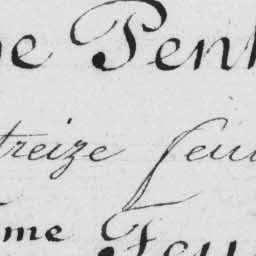 e Pen
treize feu
me Feu